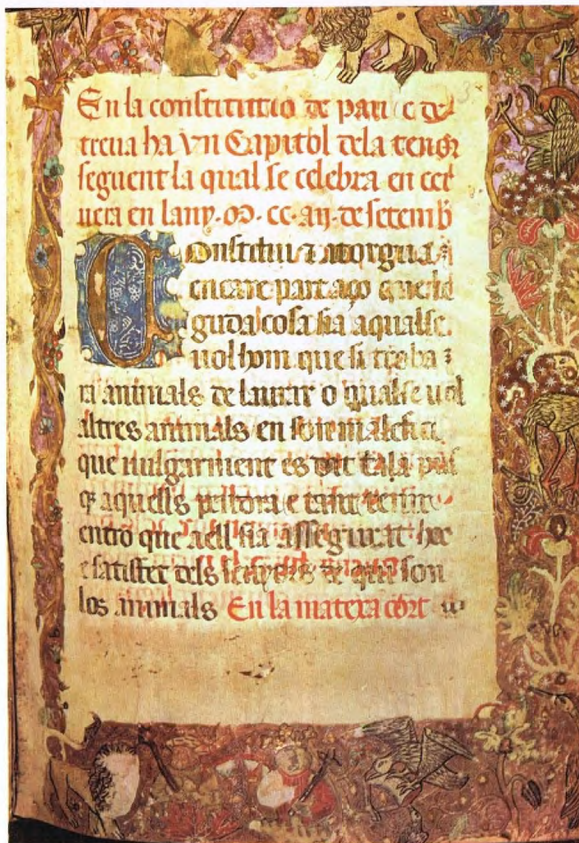 En la constitutio de pau e de
treua ha vn Capitol dela tenor
seguent la qual se celebra en cer
uera en lany. M. cc. ii. de setemb
Constitui & atorgua
encare part aço que
guda cosa sia a qualse
uol hom que si troba
ra animals de laurar o qualse uol
altres animals en son
que uulgarment es dit tala pus
q aquells e
entro que aell sia assegurat
e satisfet dels de qui son
los animals En la matexa cort